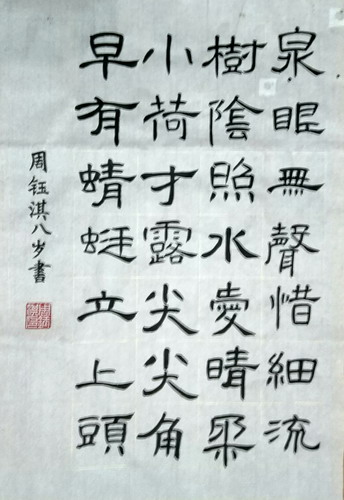 泉眼無聲惜細流
樹陰照水愛晴柔
小荷才露尖尖角
早有蜻蜓立上頭
周钰淇八岁書